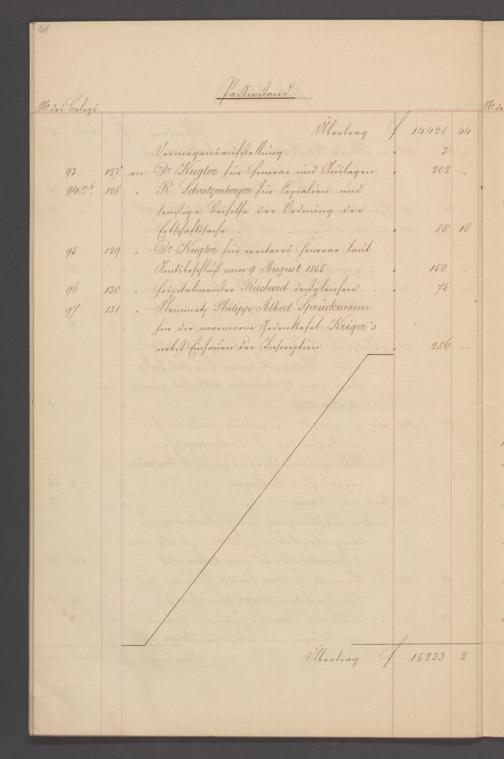 48
Passivstand.
No. des Belegs
Übertrag f 14428 44
Vermögensaufstellung „ 3 „
93 127 an Dr. Kugler für Honorar und Auslagen „ 202 „
94 a b 128 „ R. Schratzenberger für Copialien und
sonstige Beihülfe der Ordnung der
Erbschaftssache „ 88 18
95 129 „ Dr. Kugler für weiteres Honorar laut
Amtsbeschluß vom 9 August 1855 „ 150 „
96 130 „ Hospitalmeister Reichard desgleichen „ 75 „
97 131 „ Steinmetz Philipp Albert Spruckmann
für die marmorne Gedenktafel Krieger's
nebst Einhauen der Inscription „ 286 „
Übertrag f 15233 2